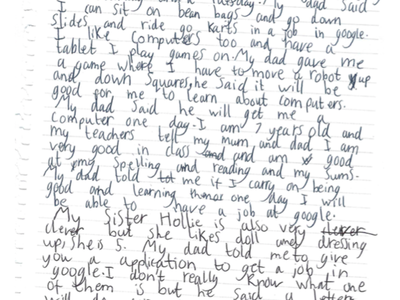 dad said
I can sit on bean bags and go down
slides and ride go karts in a job in google.
I like computers too and have a
tablet I play games on. My dad gave me
a game where I have to move a robot up
and down squares, he said it will be
good for me to learn about computers.
My dad said he will get me a
computer one day. I am 7 years old and
my teachers tell my mum and dad I am
very good in class and am good
at my spelling and reading and my sums.
My dad told me if I carry on being
good and learning one day I will
be able to have a job at google.
My sister Hollie is also very
clever but she likes doll and dressing
up, she is 5. My dad told me to give
you a application to get a job in
google. I don't really know what one
of them is but he said a